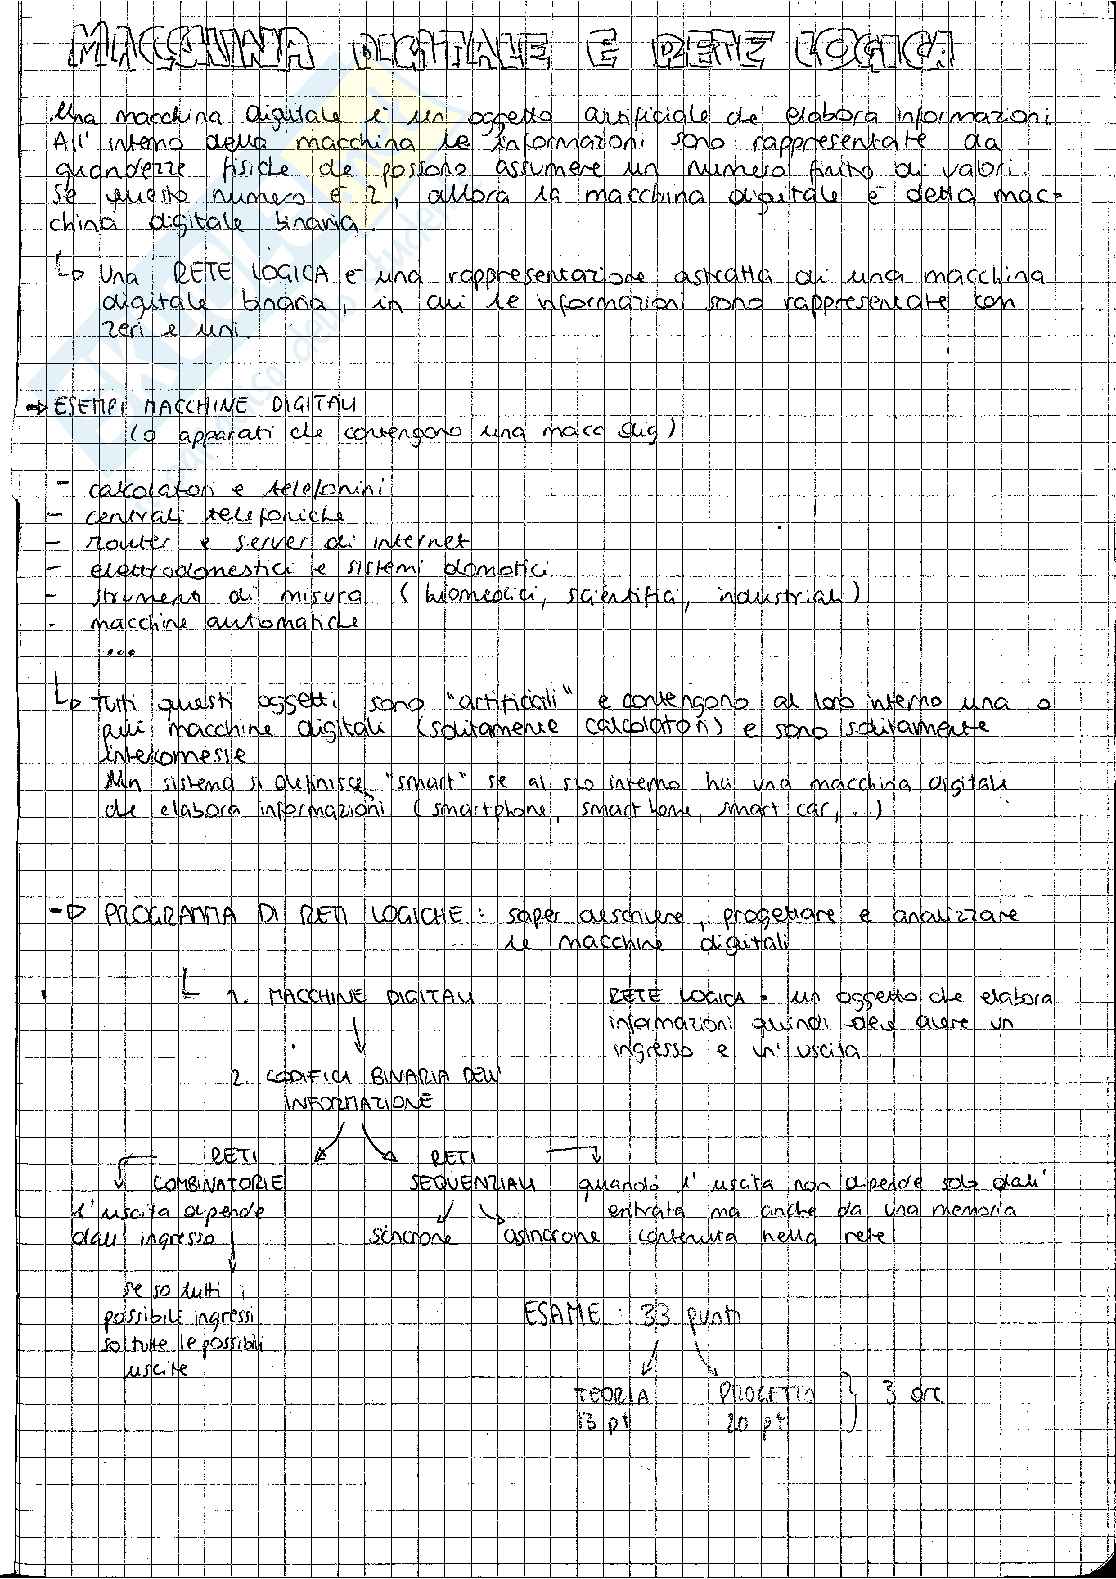 MACCHINA DIGITALE E RETE LOGICA
Una macchina digitale è un oggetto artificiale che elabora informazioni.
All' interno della macchina le informazioni sono rappresentate da
grandezze fisiche che possono assumere un numero finito di valori.
Se questo numero è 2, allora la macchina digitale è detta mac-
china digitale binaria.
Una RETE LOGICA è una rappresentazione astratta di una macchina
digitale binaria, in cui le informazioni sono rappresentate con
zeri e uni.
ESEMPI MACCHINE DIGITALI
(o apparati che contengono una macc dig)
- calcolatori e telefonini
- centrali telefoniche
- router e server di internet
- elettrodomestici e sistemi domotici
- strumenti di misura (biomedici, scientifici, industriali)
- macchine automatiche
...
Tutti questi oggetti sono "artificiali" e contengono al loro interno una o
più macchine digitali (solitamente calcolatori) e sono solitamente
interconnesse
Un sistema si definisce "smart" se al suo interno ha una macchina digitale
che elabora informazioni (smartphone, smart home, smart car, ..)
PROGRAMMA DI RETI LOGICHE : saper descrivere, progettare e analizzare
le macchine digitali
1. MACCHINE DIGITALI
RETE LOGICA : un oggetto che elabora
informazioni quindi deve avere un
ingresso e un' uscita
2. CODIFICA BINARIA DELL'
INFORMAZIONE
RETI
COMBINATORIE
l'uscita dipende
dall' ingresso
se so tutti i
possibili ingressi
so tutte le possibili
uscite
RETI
SEQUENZIALI
sincrone asincrone
quando l' uscita non dipende solo dall'
entrata ma anche da una memoria
contenuta nella rete
ESAME : 33 punti
TEORIA PROGETTO } 3 ore
13 pt 20 pt